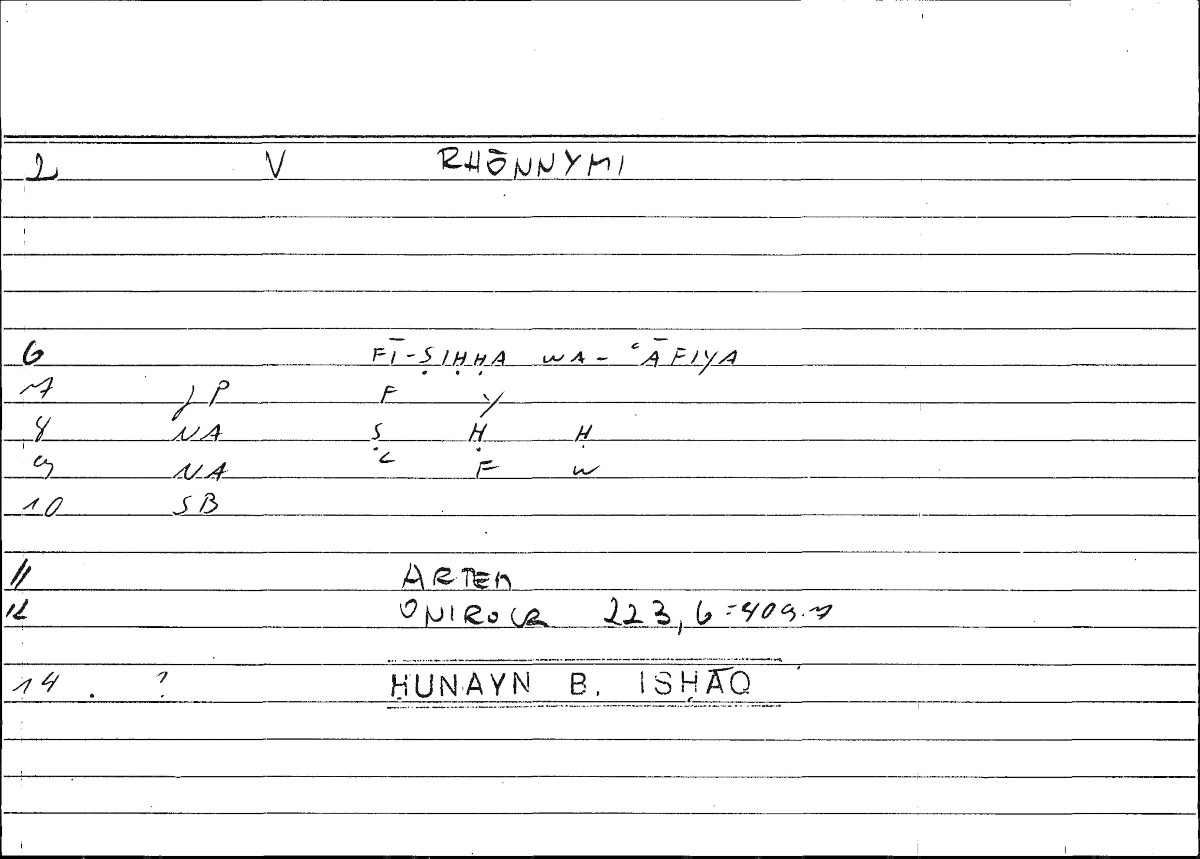 2 V RHŌNNYMI
6 FĪ-ṢIḤḤA WA-ʿĀFIYA
7 JP F Y
8 NA Ṣ Ḥ Ḥ
9 NA ʿ F W
10 SB
11 ARTEM
12 ONIROCR 223,6=409.7
14 . ? ḤUNAYN B. ISḤĀQ